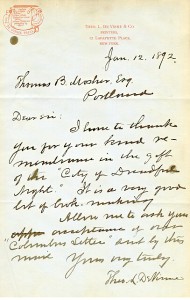 THEO. L. DE VINNE & CO.
PRINTERS,
12 LAFAYETTE PLACE,
NEW YORK.
Jan. 12, 1892
Thomas B. Mosher, Esq
Portland
Dear sir: I have to thank
you for your kind re-
membrance in the gift
of the "City of Dreadful
Night". It is a very good
bit of book-making.
Allow me to ask your
acceptance of our
Columbus Letter and by this
mail Yours very truly,
Theo. L. De Vinne